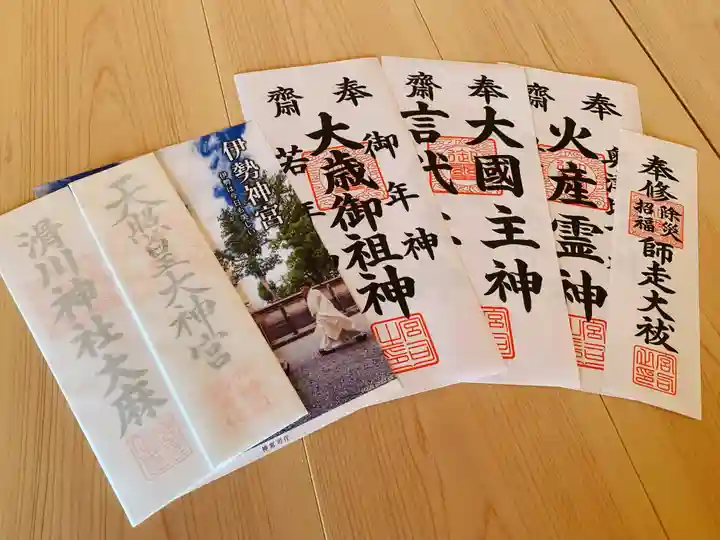 滑川神社大麻
天照皇大神宮
伊勢神宮
奉
齋
御年神
大歳御祖神
若年
奉
齋
大國主神
言代
奉
齋
火産霊神
奉修
除災
招福
師走大祓